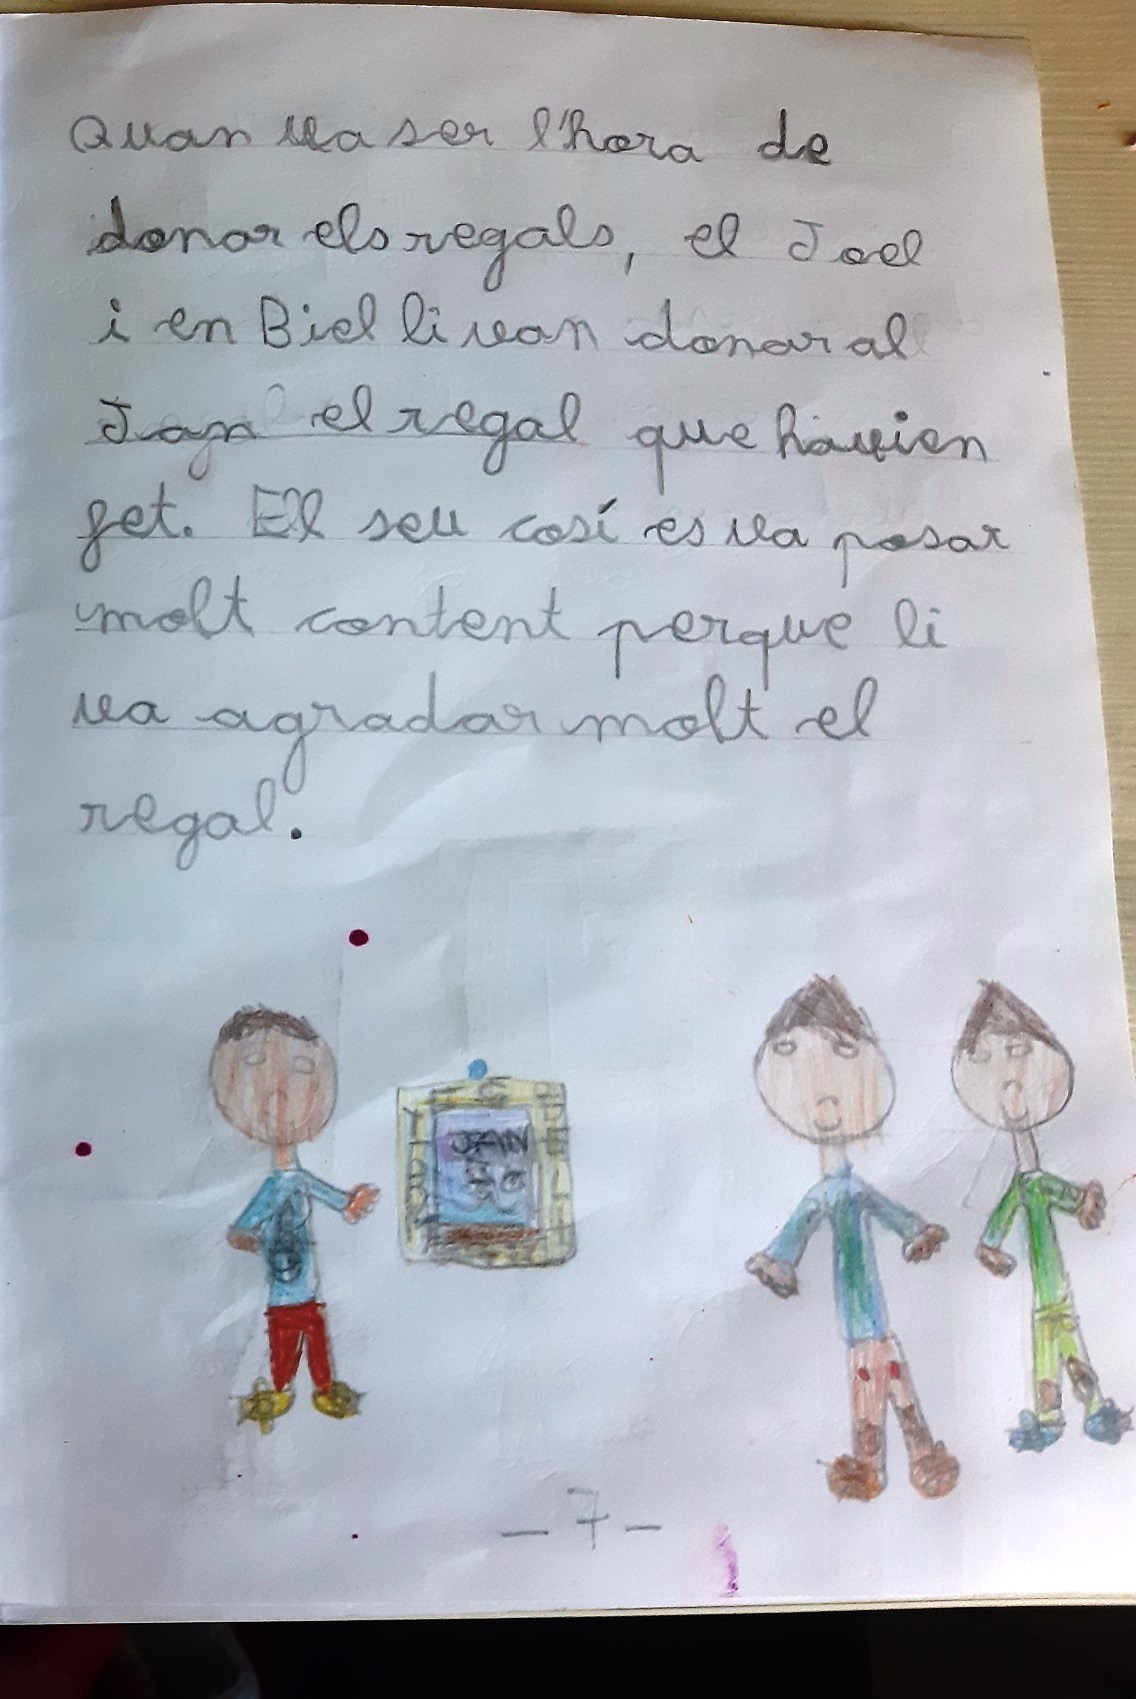 Quan va ser l'hora de
donar els regals, el Joel
i en Biel li van donar al
Jan el regal que havien
fet. El seu cosí es va posar
molt content perque li
va agradar molt el
regal.
- 7 -